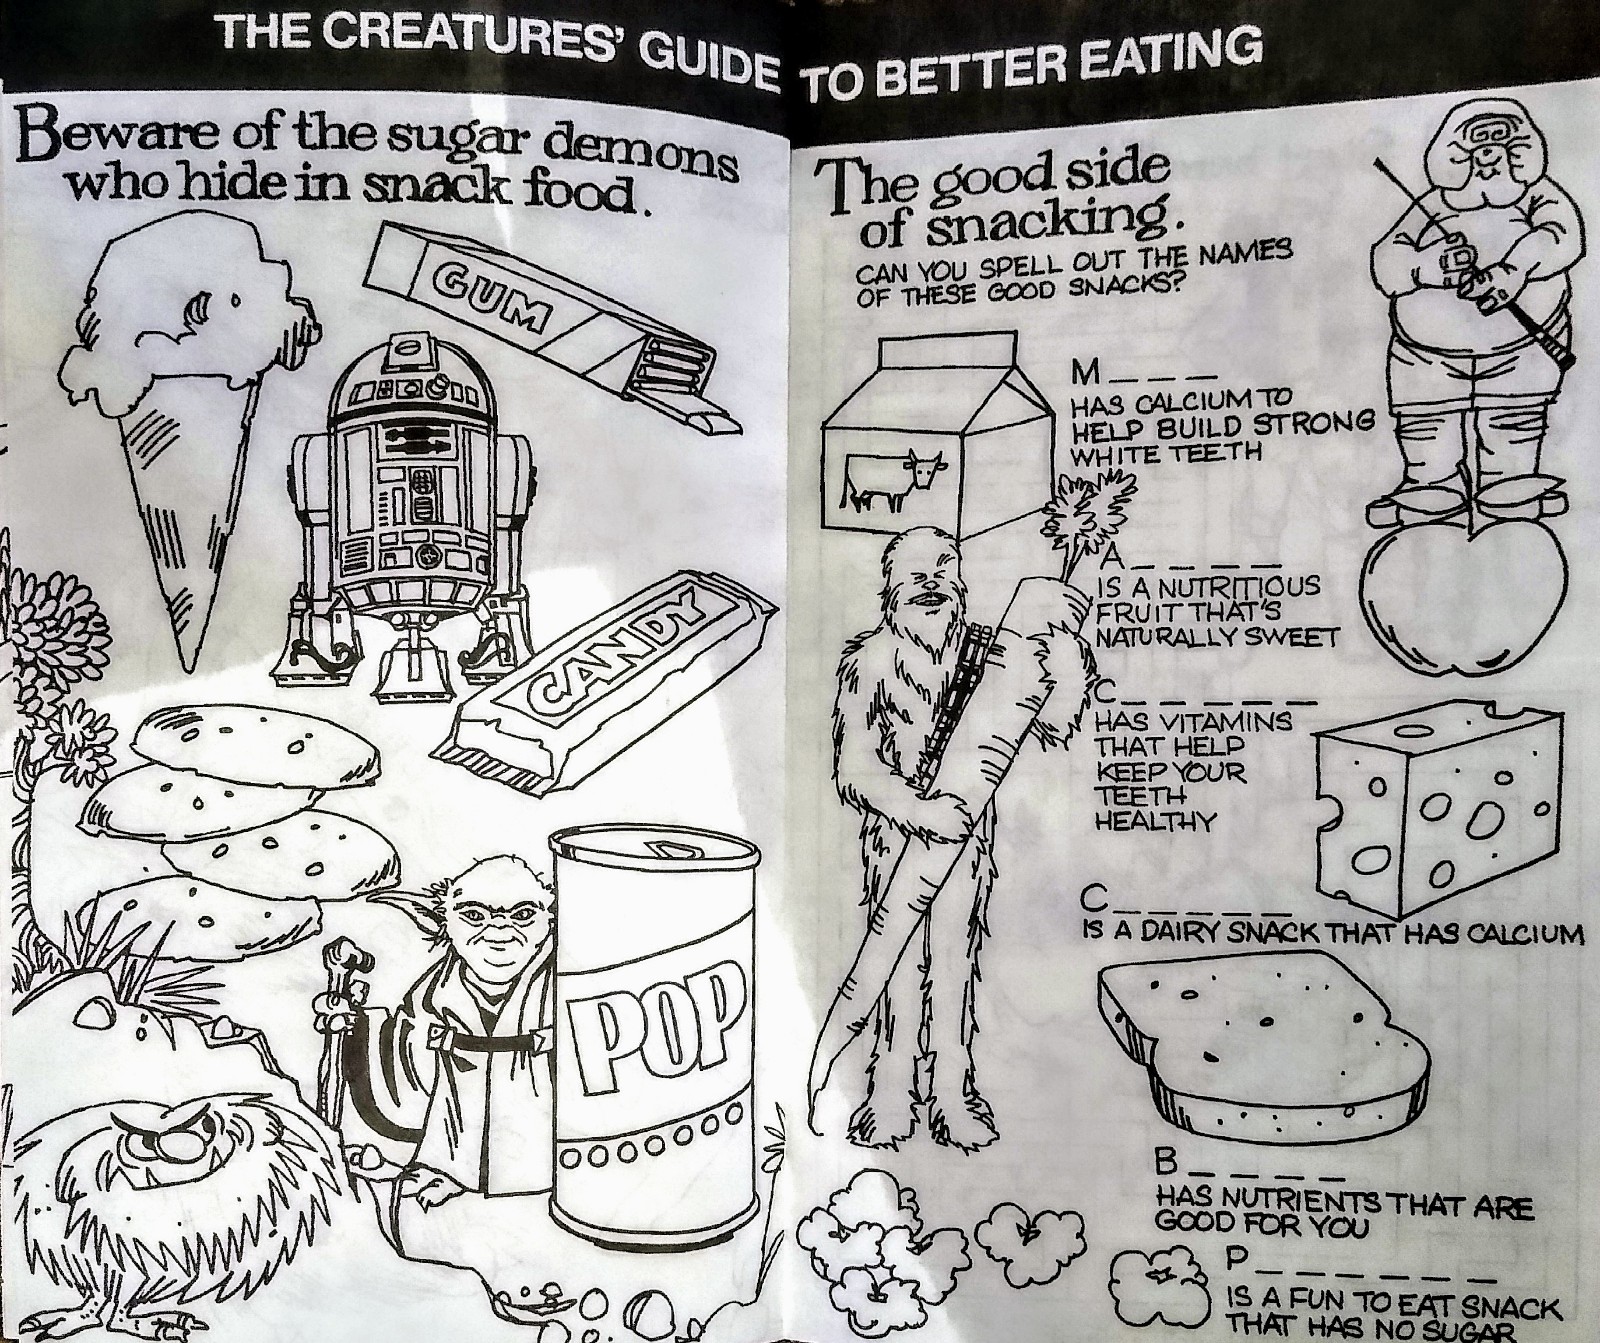 THE CREATURES' GUIDE TO BETTER EATING
Beware of the sugar demons
who hide in snack food.
GUM
CANDY
POP
The good side
of snacking.
CAN YOU SPELL OUT THE NAMES
OF THESE GOOD SNACKS?
M _ _ _
HAS CALCIUM TO
HELP BUILD STRONG
WHITE TEETH
A _ _ _ _
IS A NUTRITIOUS
FRUIT THAT'S
NATURALLY SWEET
C _ _ _ _ _
HAS VITAMINS
THAT HELP
KEEP YOUR
TEETH
HEALTHY
C _ _ _ _ _
IS A DAIRY SNACK THAT HAS CALCIUM
B _ _ _ _
HAS NUTRIENTS THAT ARE
GOOD FOR YOU
P _ _ _ _ _ _
IS A FUN TO EAT SNACK
THAT HAS NO SUGAR